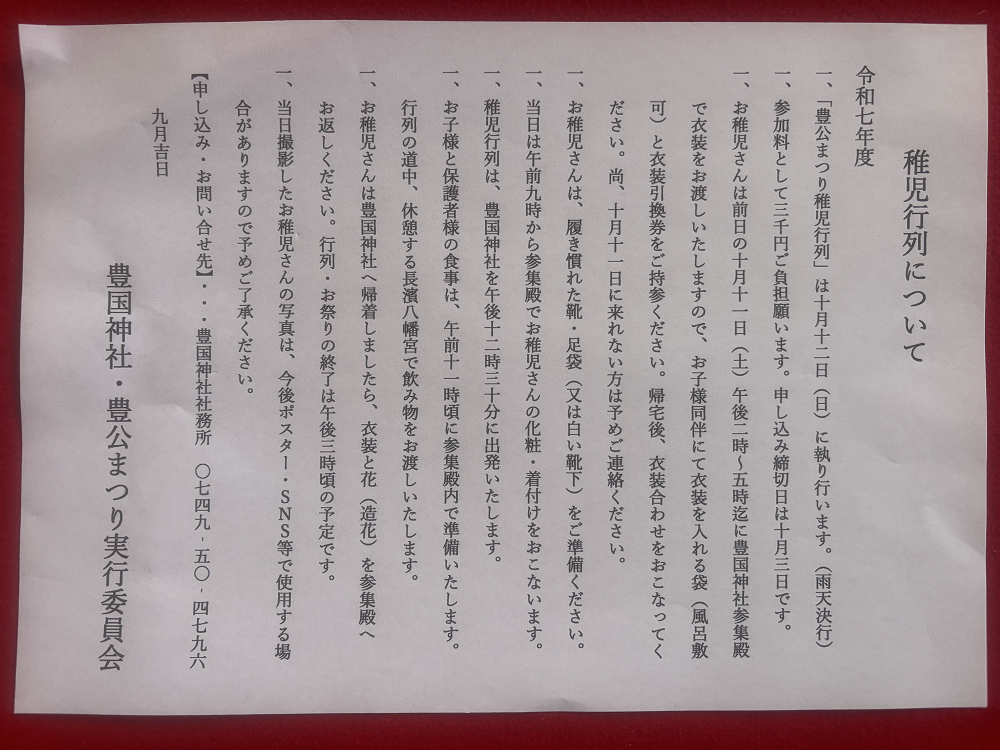 稚児行列について
令和七年度
一、「豊公まつり稚児行列」は十月十二日（日）に執り行います。（雨天決行）
一、参加料として三千円ご負担願います。申し込み締切日は十月三日です。
一、お稚児さんは前日の十月十一日（土）午後二時～五時迄に豊国神社参集殿
で衣装をお渡しいたしますので、お子様同伴にて衣装を入れる袋（風呂敷
可）と衣装引換券をご持参ください。帰宅後、衣装合わせをおこなってく
ださい。尚、十月十一日に来れない方は予めご連絡ください。
一、お稚児さんは、履き慣れた靴・足袋（又は白い靴下）をご準備ください。
一、当日は午前九時から参集殿でお稚児さんの化粧・着付けをおこないます。
一、稚児行列は、豊国神社を午後十二時三十分に出発いたします。
一、お子様と保護者様の食事は、午前十一時頃に参集殿内で準備いたします。
行列の道中、休憩する長濱八幡宮で飲み物をお渡しいたします。
一、お稚児さんは豊国神社へ帰着しましたら、衣装と花（造花）を参集殿へ
お返しください。行列・お祭りの終了は午後三時頃の予定です。
一、当日撮影したお稚児さんの写真は、今後ポスター・SNS等で使用する場
合がありますので予めご了承ください。
【申し込み・お問い合せ先】・・・豊国神社社務所　〇七四九-五〇-四七九六
九月吉日
豊国神社・豊公まつり実行委員会